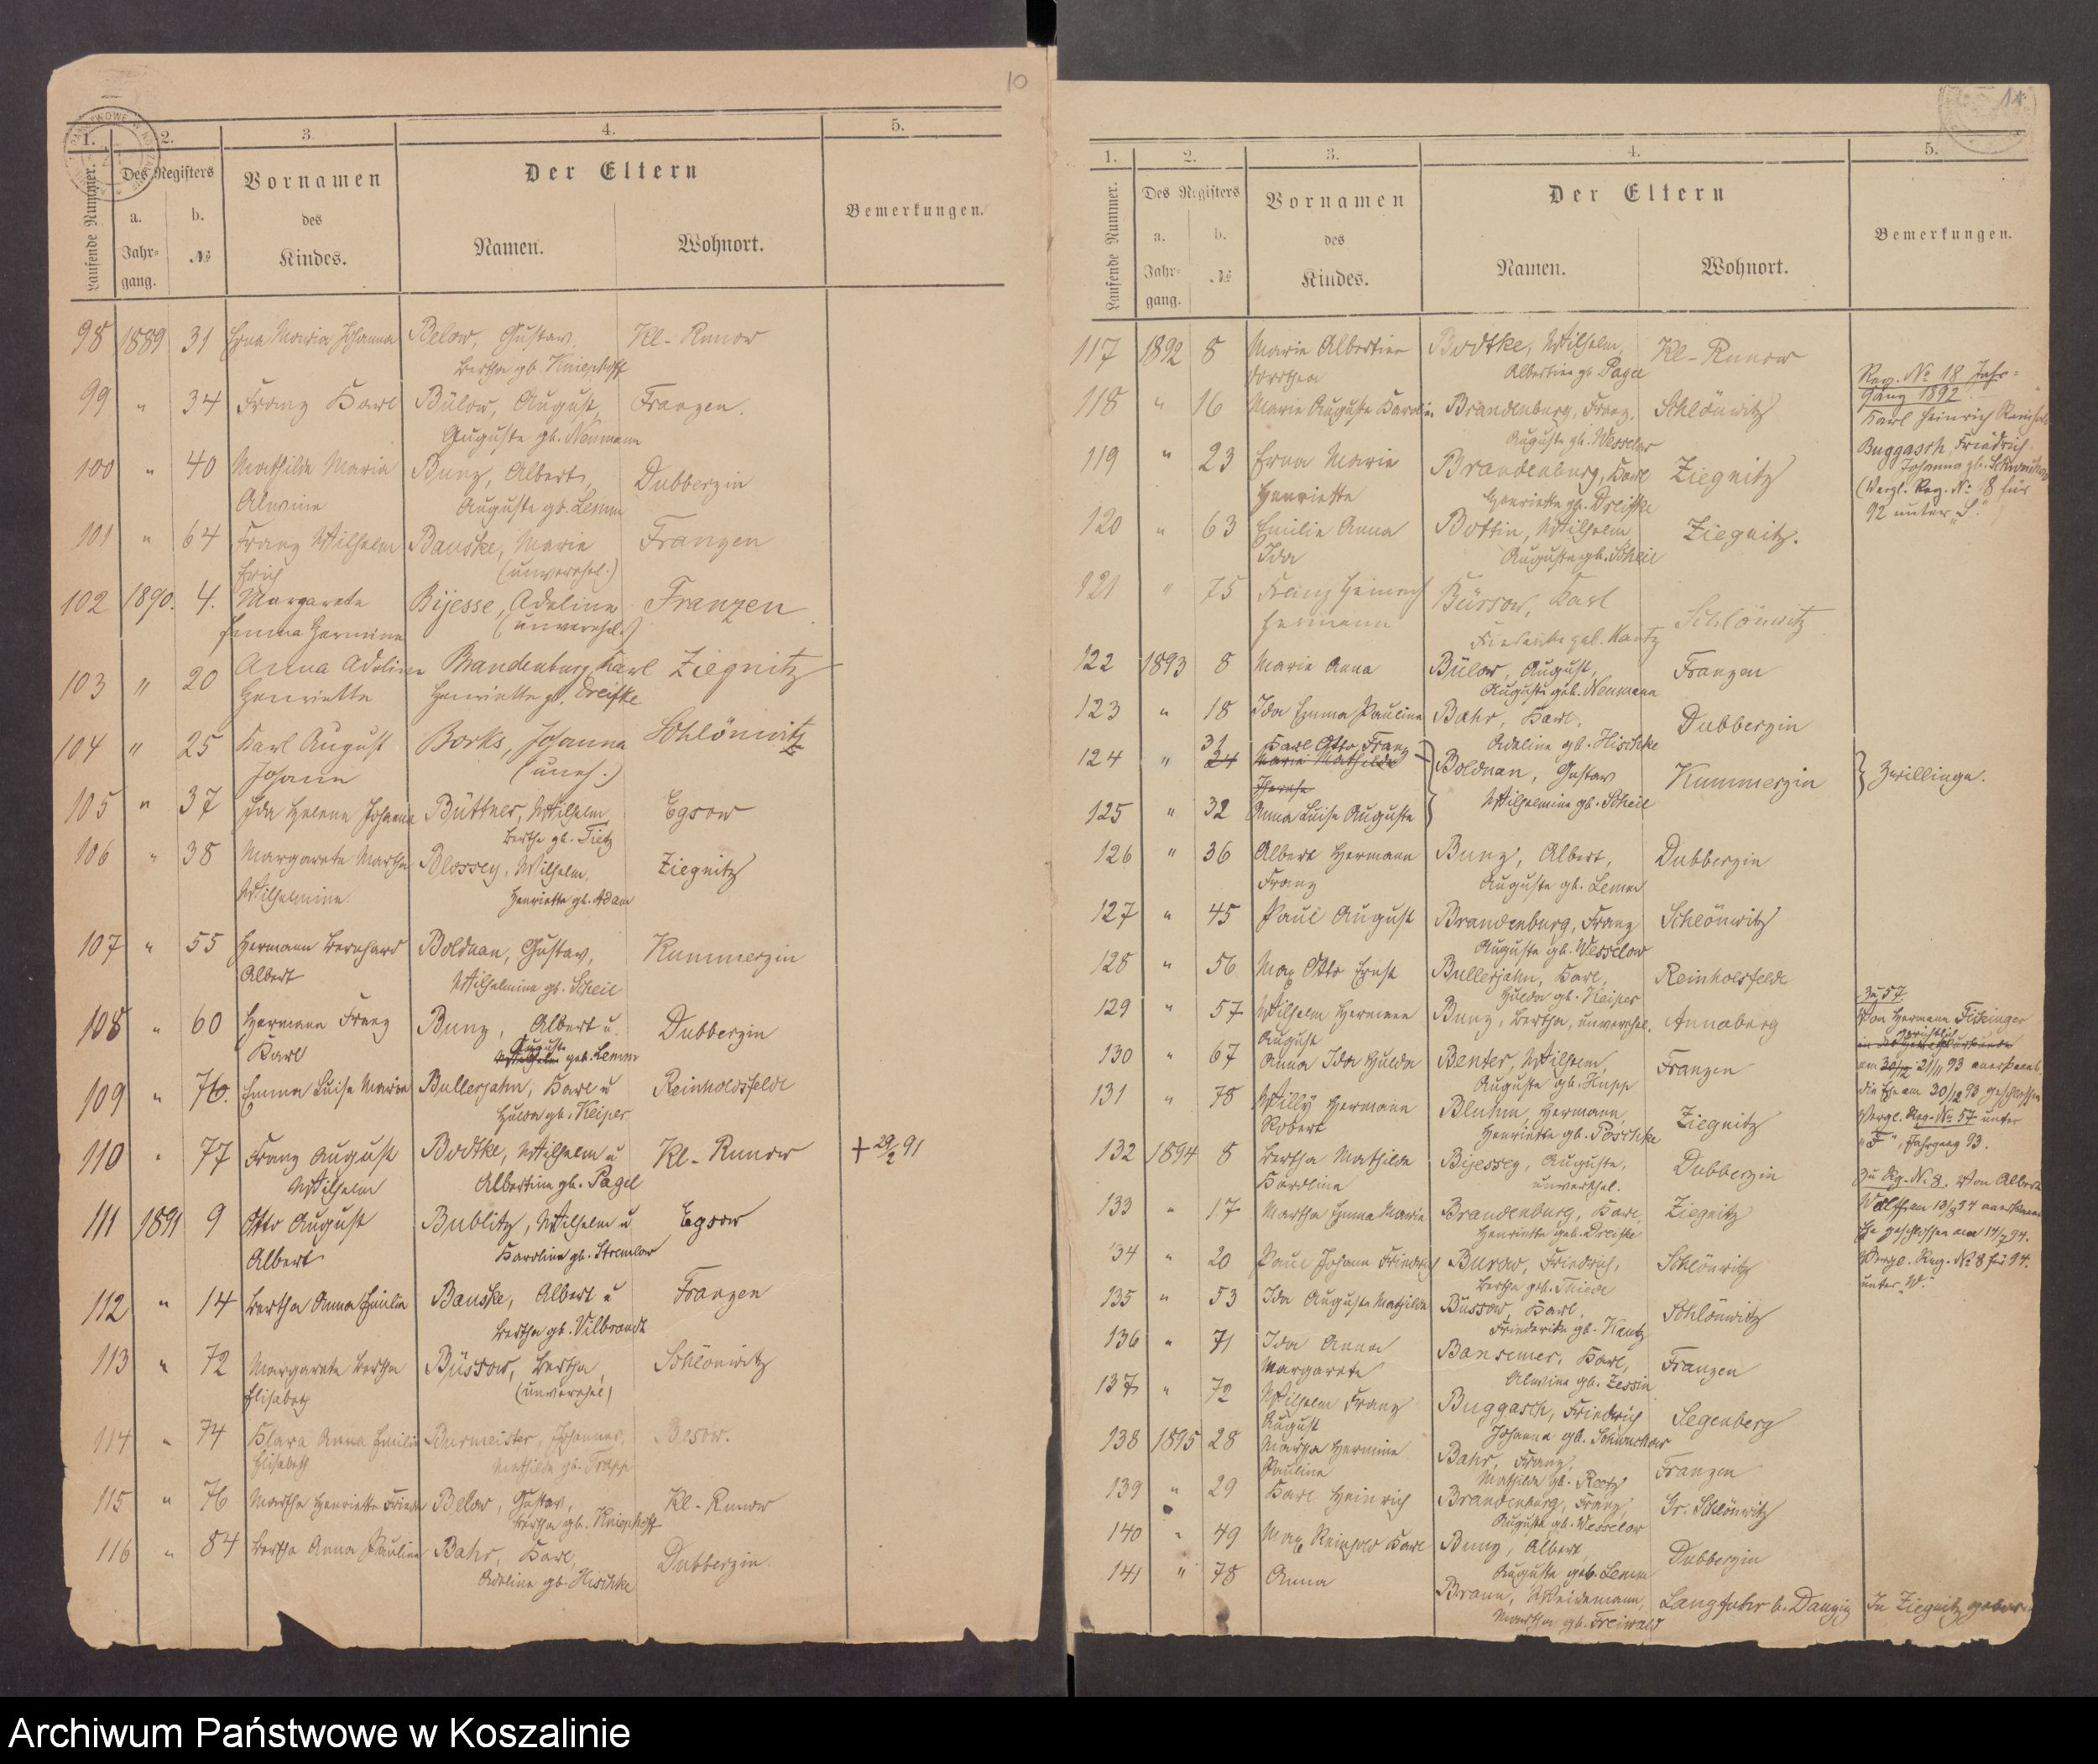 10
1. 2. 3. 4. 5.
Laufende Nummer.
Des Registers
a. Jahrgang.
b. №
Vornamen
des
Kindes.
Der Eltern
Namen. Wohnort.
Bemerkungen.
98 1889 31 Erna Maria Johanna Below, Gustav, Kl-Runow
Bertha gb. Kniephoff
99 " 34 Franz Karl Bülow, August, Franzen.
Auguste gb. Neumann
100 " 40 Mathilde Maria Bunz, Albert, Dubberzin
Alwine Auguste gb. Lemm
101 " 64 Franz Wilhelm Bauske, Marie Franzen
Erich (unverehel.)
102 1890. 4. Margarete Bijesse, Adeline Franzen
Emma Hermine (unverehel.)
103 " 20 Anna Adeline Brandenburg, Karl Ziegnitz
Henriette Henriette gb. Dreifke
104 " 25 Karl August Borks, Johanna Schlönwitz
Johann (uneh.)
105 " 37 Ida Helene Johanna Büttner, Wilhelm Egsow
Berthe gb. Tietz
106 " 38 Margarete Martha Blossey, Wilhelm, Ziegnitz
Wilhelmine Henriette gb. Adam
107 " 55 Hermann Bernhard Bolduan, Gustav, Kummerzin
Albert Wilhelmine gb. Scheil
108 " 60 Hermann Franz Bunz, Albert u. Dubberzin
Karl Auguste geb. Lemm
109 " 76. Emma Luise Marie Bullerjahn, Karl u Reinholdsfelde
Hulda gb. Keiper
110 " 77 Franz August Bodtke, Wilhelm u Kl-Runow + 29/2 91
Wilhelm Albertine gb. Pagel
111 1891 9 Otto August Bublitz, Wilhelm u Egsow
Albert Karoline gb. Stremlow
112 " 14 Bertha Anna Emilie Bauske, Albert u Franzen
Bertha gb. Vilbrandt
113 " 72 Margarete Bertha Büssow, Bertha, Schlönwitz
Elisabeth (unverehel)
114 " 74 Klara Anna Emilie Burmeister, Johannes, Besow.
Elisabeth Mathilde gb. Trapp
115 " 76 Martha Henriette Frieda Below, Gustav, Kl-Runow
Bertha gb. Kniephoff
116 " 84 Bertha Anna Pauline Bahr, Karl, Dubberzin.
Adeline gb. Hischke
1. 2. 3. 4. 5.
Laufende Nummer.
Des Registers
a. Jahrgang.
b. №
Vornamen
des
Kindes.
Der Eltern
Namen. Wohnort.
Bemerkungen.
117 1892 8 Marie Albertine Bodtke, Wilhelm, Kl-Runow
Dorothea Albertine gb. Pagel
118 " 16 Marie Auguste Karoline Brandenburg, Franz, Schlönwitz
Auguste gb. Wesselow
Reg. No 18 Jahrgang 1892
Karl Heinrich Reinhold
Buggasch, Friedrich
Johanna gb.
(Vergl. Reg. No 18 für
92 unter „S."
119 " 23 Erna Marie Brandenburg, Karl Ziegnitz
Henriette Henriette gb. Dreifke
120 " 63 Emilie Anna Bottin, Wilhelm Ziegnitz.
Ida Auguste gb. Scheil
121 " 75 Franz Heinrich Büssow, Karl Schlönwitz
Hermann Friederike geb. Kantz
122 1893 8 Marie Anna Bülow, August, Franzen
Auguste geb. Neumann
123 " 18 Ida Emma Pauline Bahr, Karl, Dubberzin
Adeline gb. Hischke
124 " 31 24 Karl Otto Franz Marie Mathilde Boldnan, Gustav Kummerzin } Zwillinge.
Therese Wilhelmine gb. Scheil
125 " 32 Anna Luise Auguste
126 " 36 Albert Hermann Bunz, Albert, Dubberzin
Franz Auguste gb. Lemm
127 " 45 Paul August Brandenburg, Franz Schlönwitz
Auguste gb. Wesselow
128 " 56 Max Otto Ernst Bullerjahn, Karl, Reinholdsfelde
Hulda gb. Keiper
129 " 57 Wilhelm Hermann Bunz, Bertha, unverehel. Annaberg
August
Zu 57.
Von Hermann
am 21/11 93 anerkannt
die Ehe am 30/12 93 geschlossen
Vergl. Reg. No 57 unter
„F", Jahrgang 93.
130 " 67 Anna Ida Hulda Benter, Wilhelm, Franzen
Auguste gb. Hupp
131 " 78 Willy Hermann Bluhm, Hermann, Ziegnitz
Robert Henriette gb. Poschke
132 1894 8 Bertha Mathilde Bijessey, Auguste, Dubberzin
Karoline unverehel.
Zu Rg. N. 8. Von Albert
Ehe geschlossen am
Vergl. Reg. No 8 für 94.
unter „W."
133 " 17 Martha Emma Marie Brandenburg, Karl, Ziegnitz
Henriette geb. Dreifke
134 " 20 Paul Johann Friedrich Burow, Friedrich, Schlönwitz
Bertha geb. Thiede
135 " 53 Ida Auguste Mathilde Büssow, Karl, Schlönwitz
Friederike gb. Kantz
136 " 71 Ida Anna Bansemer, Karl, Franzen
Margarete Alwine gb. Zessin
137 " 72 Wilhelm Franz Buggasch, Friedrich Segenberg
August Johanna gb.
138 1895 28 Martha Hermine Bahr, Franz, Franzen
Pauline Mathilde gb. Reetz
139 " 29 Karl Heinrich Brandenburg, Franz, Gr. Schlönwitz
Auguste gb. Wesselow
140 " 49 Max Reinhold Karl Bunz, Albert, Dubberzin
Auguste geb. Lemm
141 " 78 Anna Braun, Weidemann, Langfuhr b. Danzig In Ziegnitz geboren
Martha gb. Freiwald
Archiwum Państwowe w Koszalinie